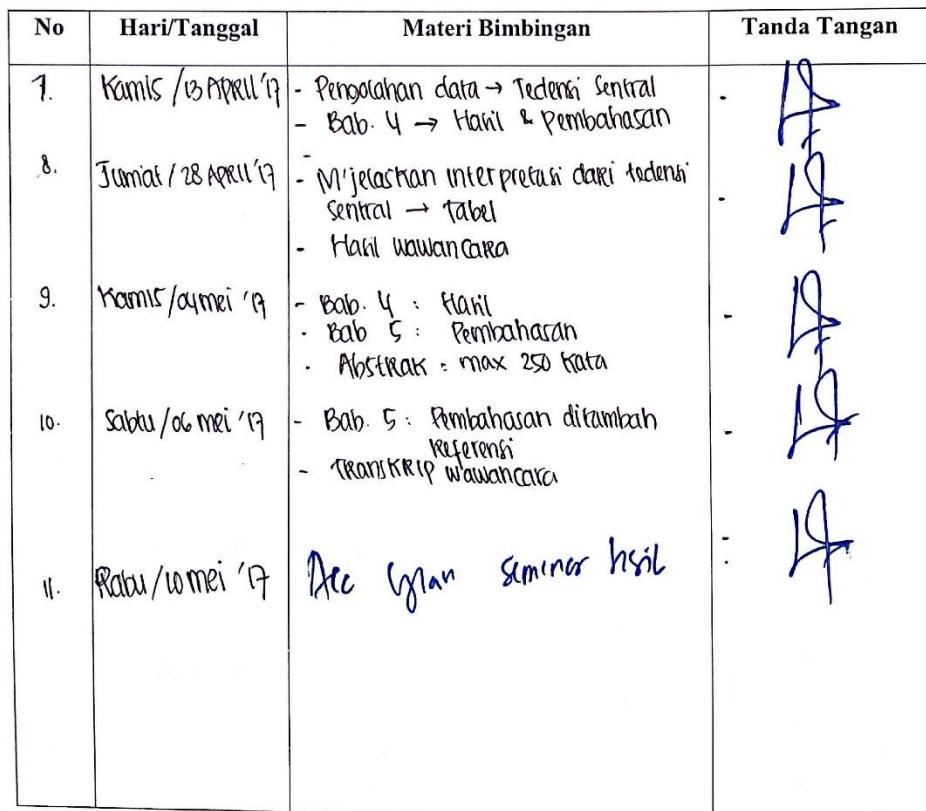 No Hari/Tanggal Materi Bimbingan Tanda Tangan
7. Kamis /13 APRIL '17 - Pengolahan data → Tedensi Sentral -
- Bab. 4 → Hasil & Pembahasan
8. Jumat / 28 APRIL '17 - M'jelaskan interpretasi dari tedensi -
sentral → tabel
- Hasil wawancara
9. Kamis /04 mei '17 - Bab. 4 : Hasil -
- Bab 5 : Pembahasan
- Abstrak : max 250 kata
10. Sabtu /06 mei '17 - Bab. 5 : Pembahasan ditambah -
Referensi
- TRANSKRIP wawancara
11. Rabu /10 mei '17 Acc seminar hsil